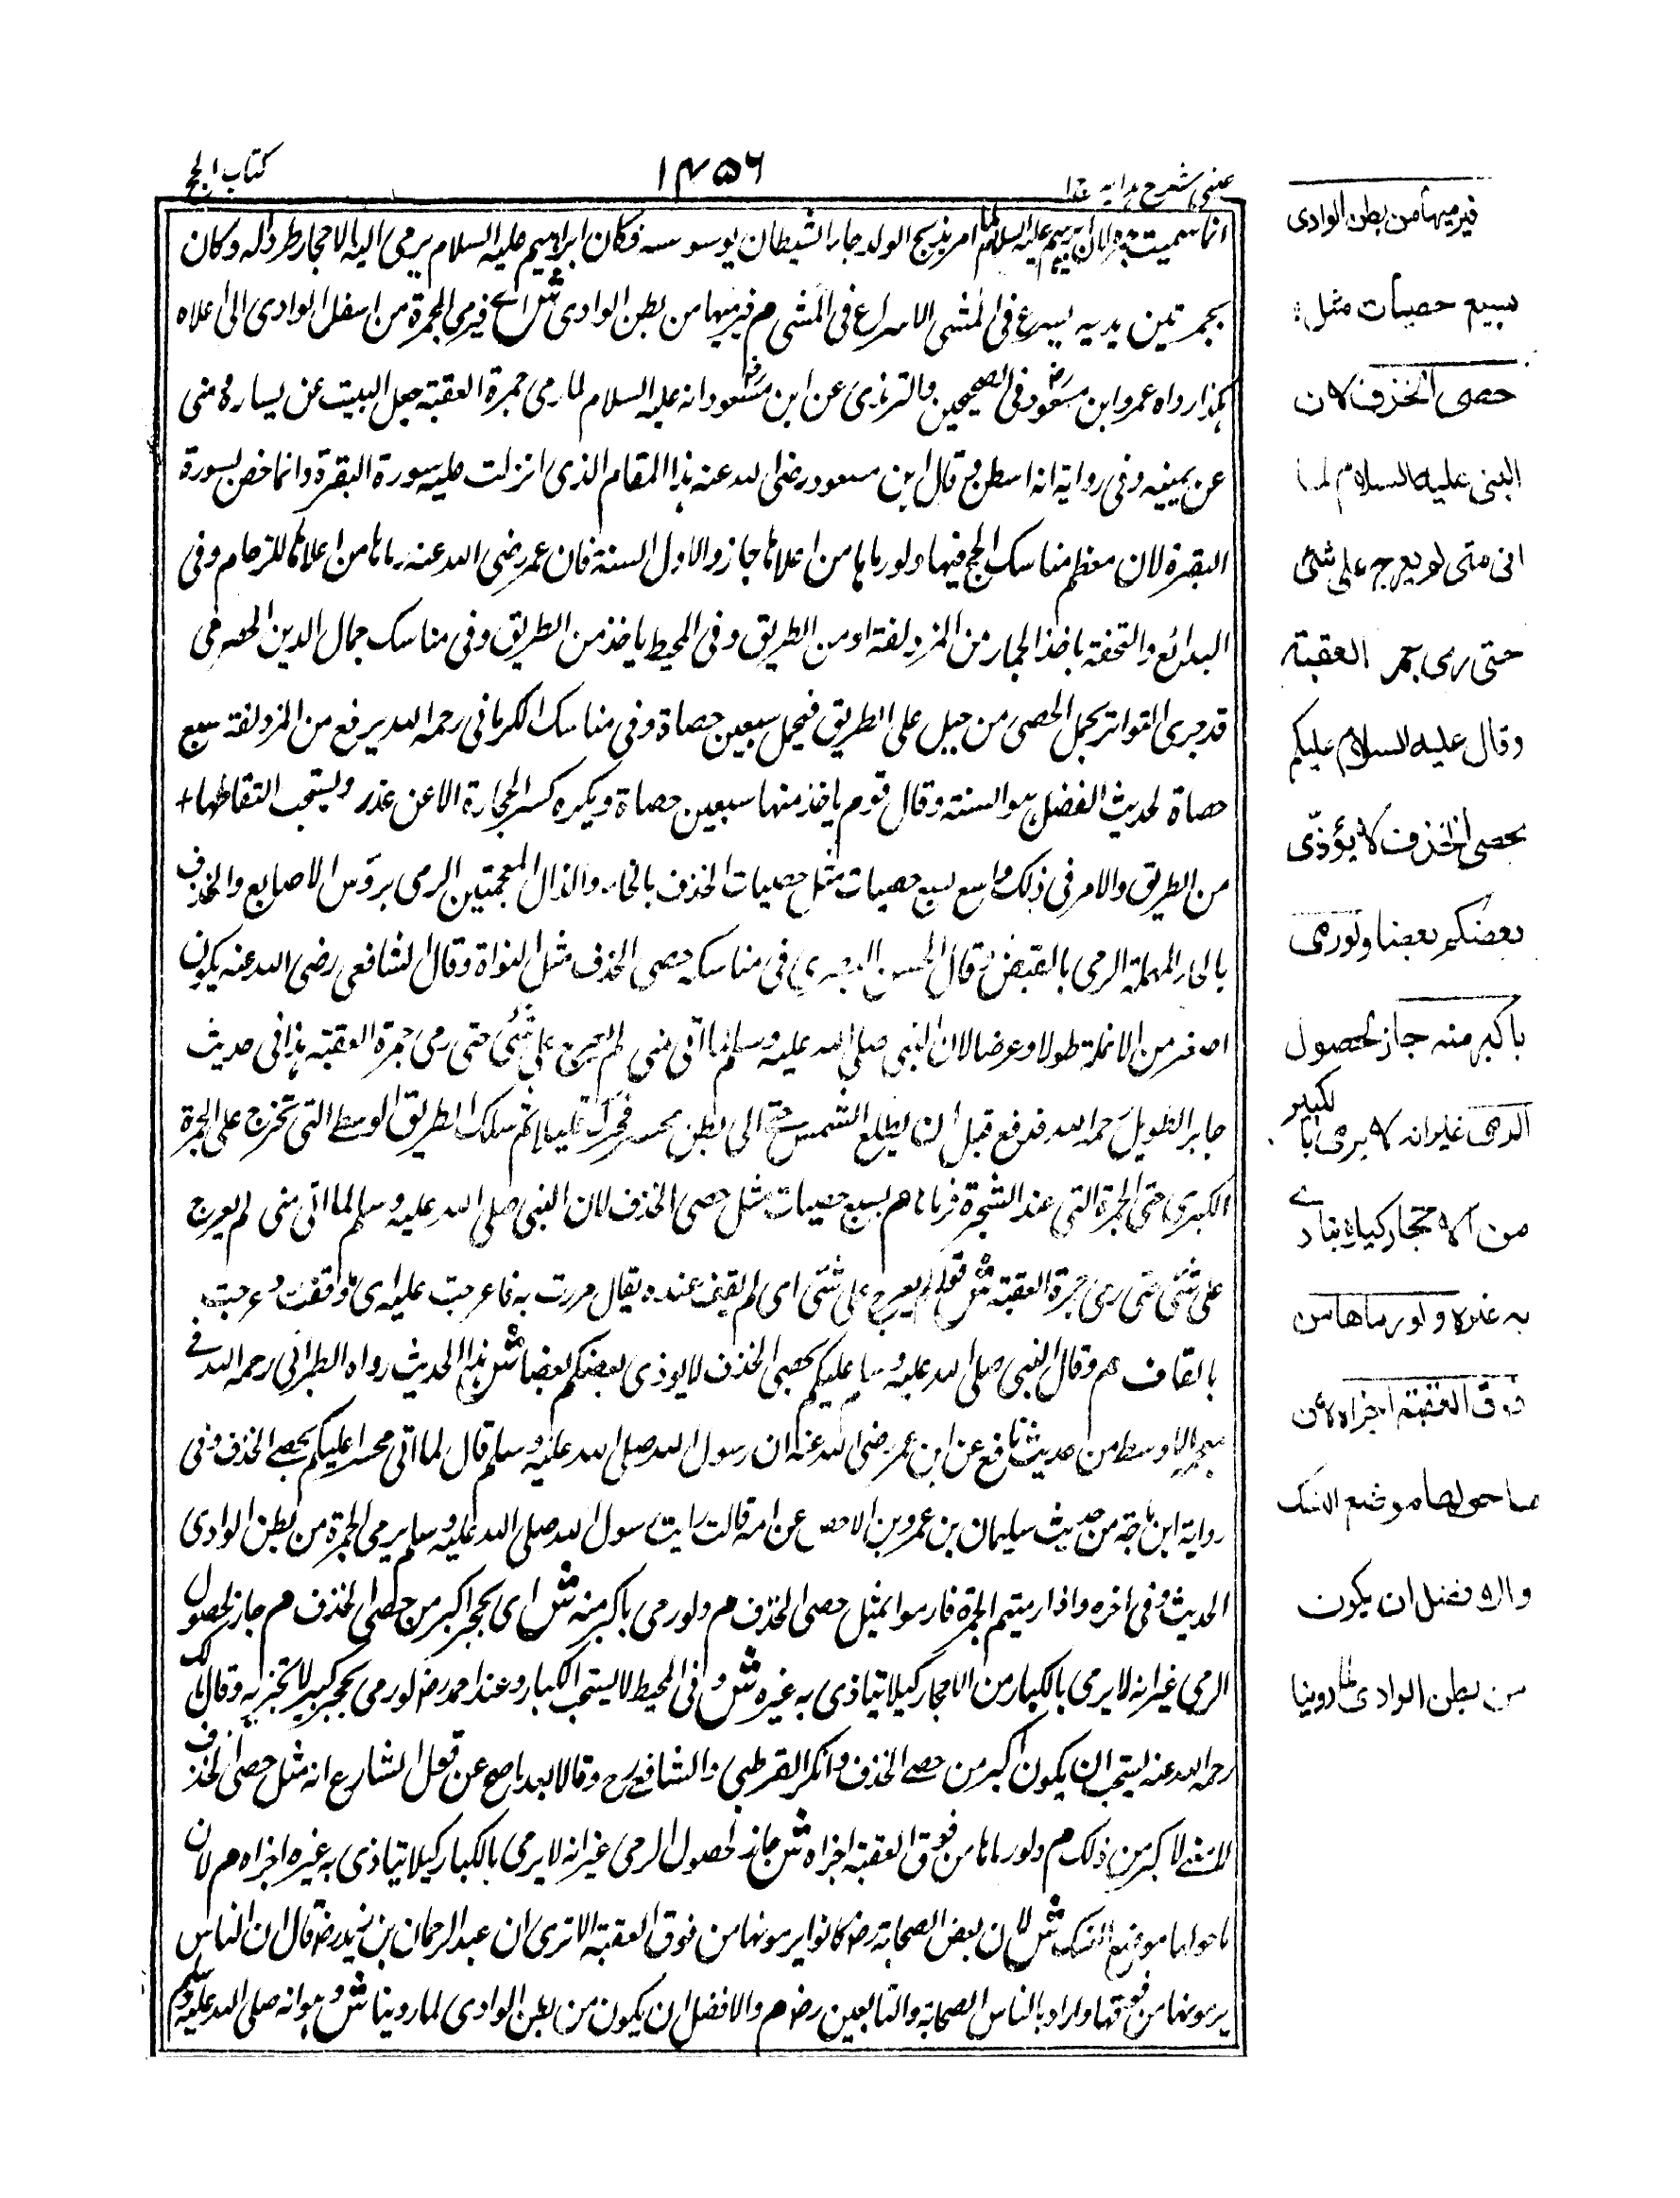 عيني شرح هدايه ج۱
۱۴۵۶
كتاب الحج
انما سميت جمرة لان ابراهيم عليه السلام لما امر بذبح الولد جاء الشيطان يوسوسه فكان ابراهيم عليه السلام يرمي اليه الاحجار طردا له وكان
يجمر بين يديه يسرع في المشي الاسراع في المشي م فيرميها من بطن الوادي ش اى فيرمي الجمرة من اسفل الوادي الى اعلاه
هكذا رواه عمر وابن مسعود رض في الصحيحين والترمذي عن ابن مسعود رض انه عليه السلام لما رمى جمرة العقبة جعل البيت عن يساره ومنى
عن يمينه وفي رواية انه قال ابن مسعود رضي الله عنه هذا المقام الذي انزلت عليه سورة البقرة وانما خص بسورة
البقرة لان معظم مناسك الحج فيها ولو رماها من اعلاها جاز والاول السنة فان عمر رضي الله عنه رماها من اعلاها للزحام وفي
البدائع والتحفة ياخذ الجمار من المزدلفة او من الطريق وفي المحيط ياخذ من الطريق وفي مناسك جمال الدين الحصري
قد جرى التواتر بحمل الحصى من جبل على الطريق فيحمل سبعين حصاة وفي مناسك الكرماني رحمه الله يرفع من المزدلفة سبع
حصاة لحديث الفضل هو السنة وقال قوم ياخذ منها سبعين حصاة ويكره كسر الحجارة الا عن عذر ويستحب التقاطها +
من الطريق والامر في ذلك واسع سبع حصيات مثل حصيات الخذف بالخاء والذال المعجمتين الرمي برؤس الاصابع والحذف
بالحاء المهملة الرمي بالقبض وقال الحسن البصري في مناسكه حصى الخذف مثل النواة وقال الشافعي رضي الله عنه يكون
اصغر من الانملة طولا وعرضا لان النبي صلى الله عليه وسلم لما اتى منى لم يعرج على شئ حتى رمى جمرة العقبة هذا في حديث
جابر الطويل رحمه الله فدفع قبل ان يطلع الشمس حتى اتى بطن محسر فحرك قليلا ثم سلك الطريق الوسطى التي تخرج على الجمرة
الكبرى حتى الجمرة التي عند الشجرة فرماها م بسبع حصيات مثل حصى الخذف لان النبي صلى الله عليه وسلم لما اتى منى لم يعرج
على شئ حتى رمى جمرة العقبة ش قوله لم يعرج على شئ اى لم يقف عنده يقال مررت به فما عرجت عليه اى وقفت وعرجت
بالقاف م وقال النبي صلى الله عليه وسلم عليكم بحصى الخذف لا يوذي بعضكم بعضا ش هذا الحديث رواه الطبراني رحمه الله في
معجمه الاوسط من حديث نافع عن ابن عمر رضي الله عنه ان رسول الله صلى الله عليه وسلم قال لما اتى محسرا عليكم بحصى الخذف وفي
رواية ابن ماجة من حديث سليمان بن عمرو بن الاحوص عن امه قالت رايت رسول الله صلى الله عليه وسلم يرمي الجمرة من بطن الوادي
الحديث وفي اخره واذا رميتم الجمرة فارموا بمثل حصى الخذف م ولو رمى باكبر منه ش اى بحجر اكبر من حصى الخذف م جاز لحصول
الرمي غير انه لا يرمي بالكبار من الاحجار كيلا يتاذى به غيره ش وفي المحيط لا يستحب الكبار وعند احمد رض لو رمى بحجر كبير لا تجزيه وقال مالك
رحمه الله عنه يستحب ان يكون اكبر من حصى الخذف وانكر القرطبي والشافعي رح وقالا بعد ما صح عن قول الشارع انه مثل حصى الخذف
لا معنى لاكبر من ذلك م ولو رماها من فوق العقبة اجزاه ش جاز لحصول الرمي غير انه لا يرمي بالكبار كيلا يتاذى به غيره اجزاه م لان
ما حولها موضع النسك ش لان بعض الصحابة رض كانوا يرمونها من فوق العقبة الا ترى ان عبد الرحمان بن يزيد رض قال ان الناس
يرمونها من فوقها واراد بالناس الصحابة والتابعين رض م والافضل ان يكون من بطن الوادي لما روينا ش وهو انه صلى الله عليه وسلم
فيرميها من بطن الوادى
بسبع حصيات مثل
حصى الخذف لان
النبى عليه السلام لما
اتى منى لم يعرج على شئ
حتى رمى جمرة العقبة
وقال عليه السلام عليكم
بحصى الخذف لا يؤذى
بعضكم بعضا ولو رمى
باكبر منه جاز لحصول
الرمى غير انه لا يرمى بالكبير
من الاحجار كيلا يتاذى
به غيره ولو رماها من
فوق العقبة اجزاه لان
ما حولها موضع النسك
والافضل ان يكون
من بطن الوادى لما روينا